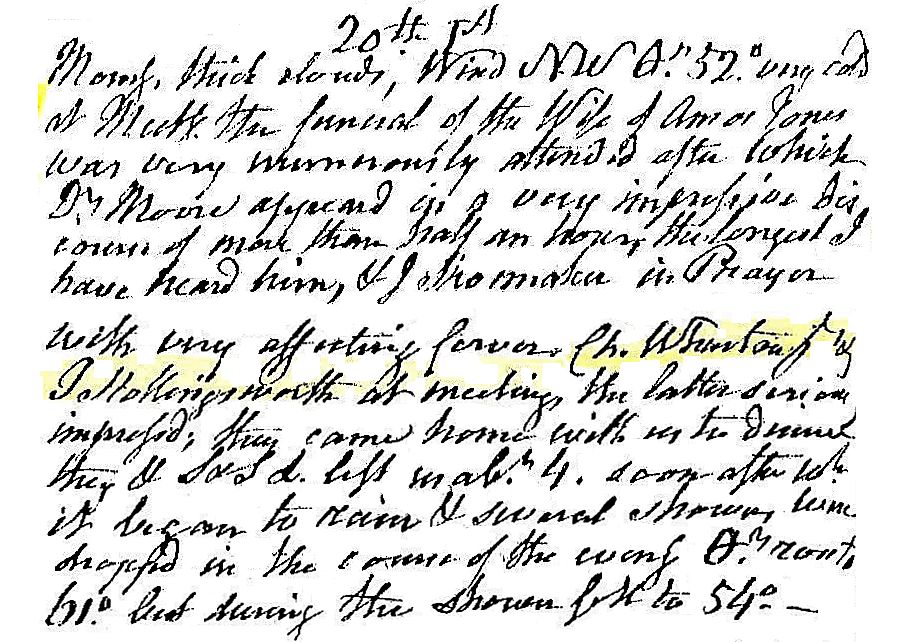 20th 1st
Morng. thick clouds, Wind NW Ər. 52.° very cold
at Meetg. the funeral of the Wife of Amos Jones
was very numerously attended after which
Dr. Moore appeard in a very impressive dis
course of more than half an hour, the longest I
have heard him, & J Shoemaker in Prayer
with very affecting fervor. Ch. Wharton Jr. &
I Hollingsworth at meeting, the latter serious
impressed; they came home with us to dinner
they & S & S d. left us abt. 4. soon after wh.
it began to rain & several showers were
dropped in the course of the eveng Ər.
61.° but during the shower fell to 54°. —